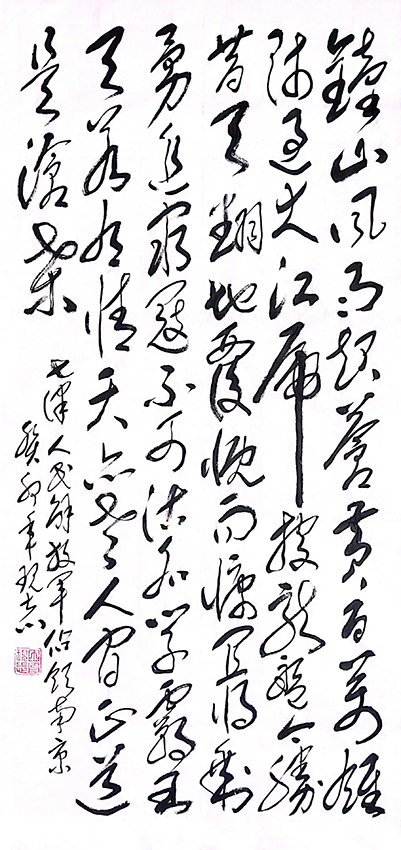 鐘山風雨起蒼黃百萬雄
師過大江虎踞龍盤今勝
昔天翻地覆慨而慷宜將剩
勇追窮寇不可沽名學霸王
天若有情天亦老人間正道
是滄桑
七律人民解放軍佔領南京
癸卯年